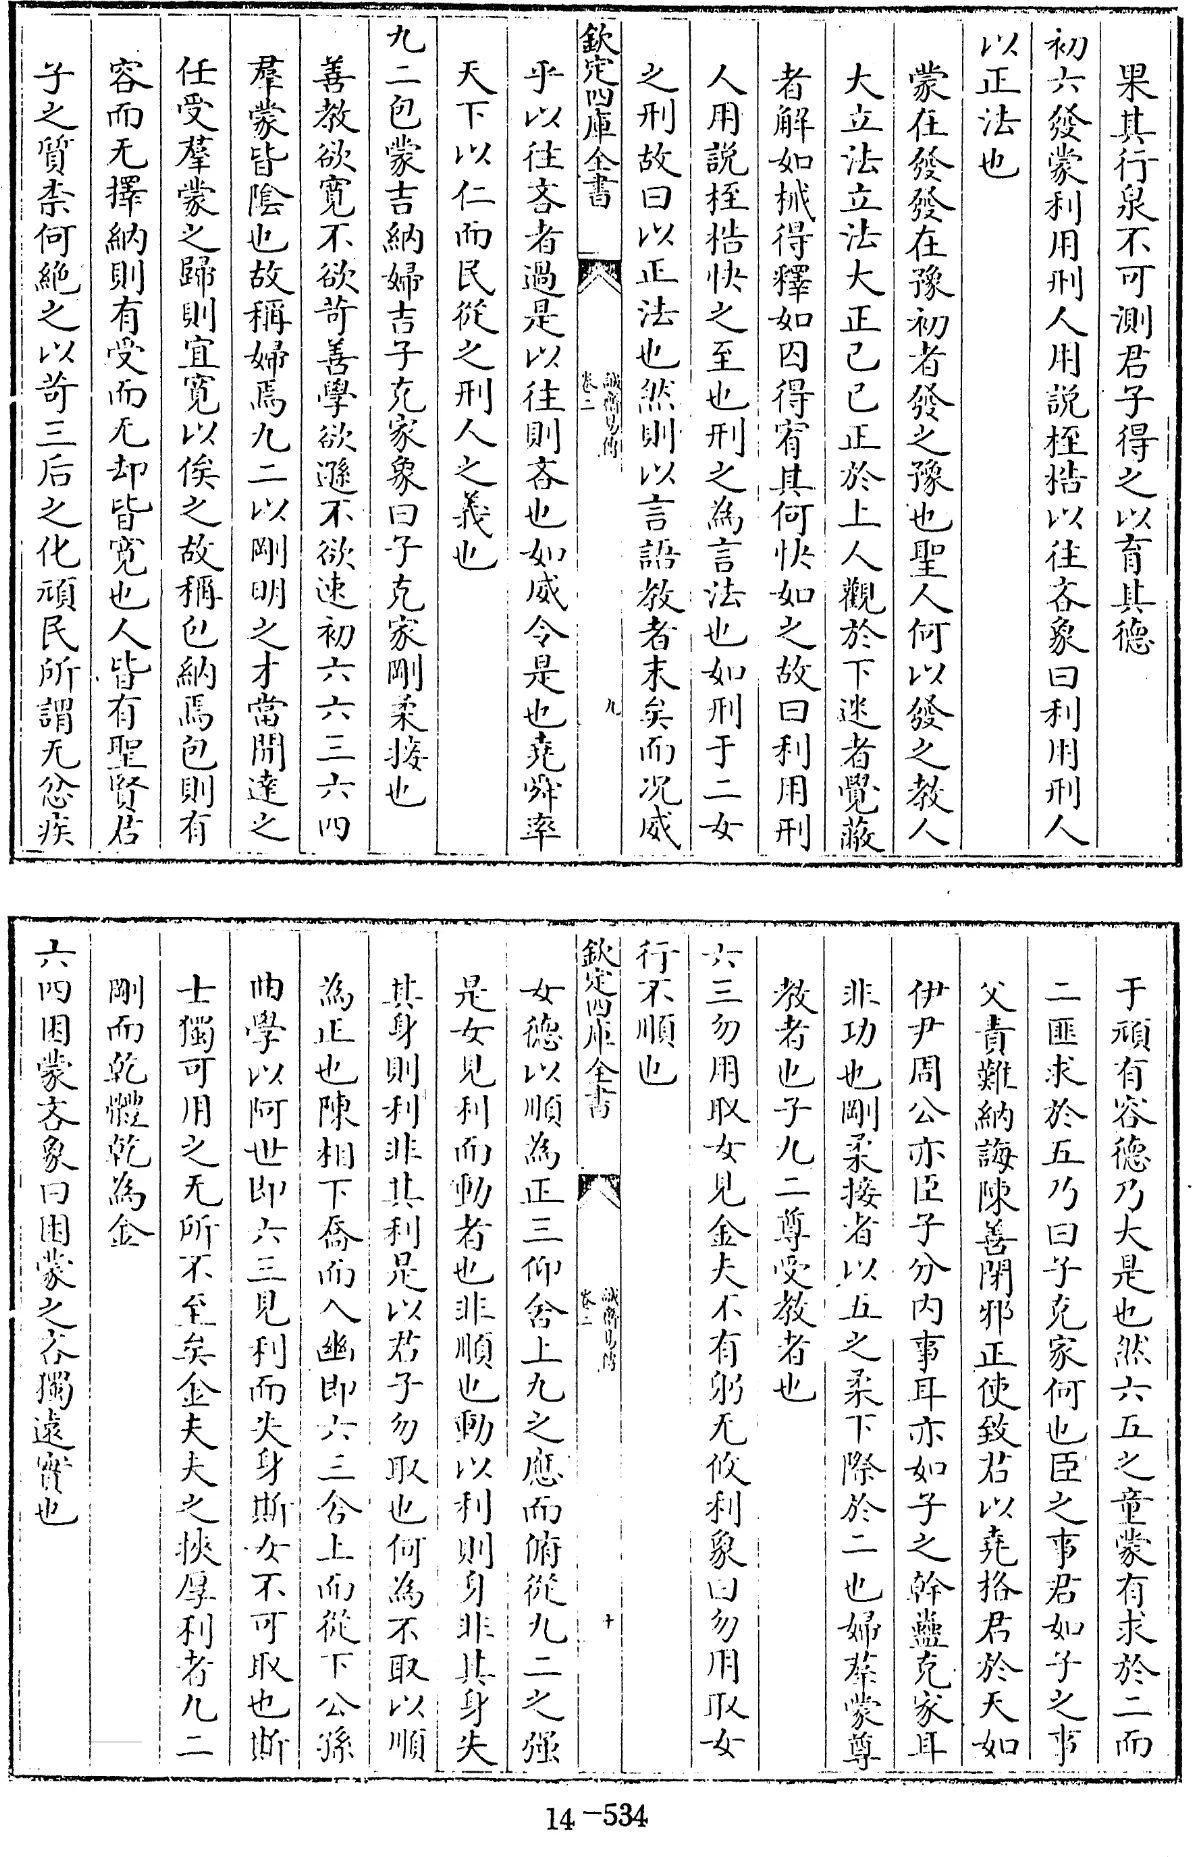 果其行泉不可測君子得之以育其德
初六發蒙利用刑人用説桎梏以往吝象曰利用刑人
以正法也
蒙在發發在豫初者發之豫也聖人何以發之教人
大立法立法大正己己正於上人觀於下迷者覺蔽
者解如械得釋如囚得宥其何快如之故曰利用刑
人用説桎梏快之至也刑之為言法也如刑于二女
之刑故曰以正法也然則以言語教者末矣而况威
欽定四庫全書
誠齋易傳
卷二
九
乎以往吝者過是以往則吝也如威令是也堯舜率
天下以仁而民從之刑人之義也
九二包蒙吉納婦吉子克家象曰子克家剛柔接也
善教欲寛不欲苛善學欲遜不欲速初六六三六四
羣蒙皆陰也故稱婦焉九二以剛明之才當開達之
任受羣蒙之歸則宜寛以俟之故稱包納焉包則有
容而无擇納則有受而无却皆寛也人皆有聖賢君
子之質柰何絶之以苛三后之化頑民所謂无忿疾
于頑有容德乃大是也然六五之童蒙有求於二而
二匪求於五乃曰子克家何也臣之事君如子之事
父責難納誨陳善閉邪正使致君以堯格君於天如
伊尹周公亦臣子分内事耳亦如子之幹蠱克家耳
非功也剛柔接者以五之柔下際於二也婦羣蒙尊
教者也子九二尊受教者也
六三勿用取女見金夫不有躬无攸利象曰勿用取女
行不順也
欽定四庫全書
誠齋易傳
卷二
十
女德以順為正三仰舍上九之應而俯從九二之强
是女見利而動者也非順也動以利則身非其身失
其身則利非其利是以君子勿取也何為不取以順
為正也陳相下喬而入幽即六三舍上而從下公孫
曲學以阿世即六三見利而失身斯女不可取也斯
士獨可用之无所不至矣金夫夫之挾厚利者九二
剛而乾體乾為金
六四困蒙吝象曰困蒙之吝獨遠實也
14-534